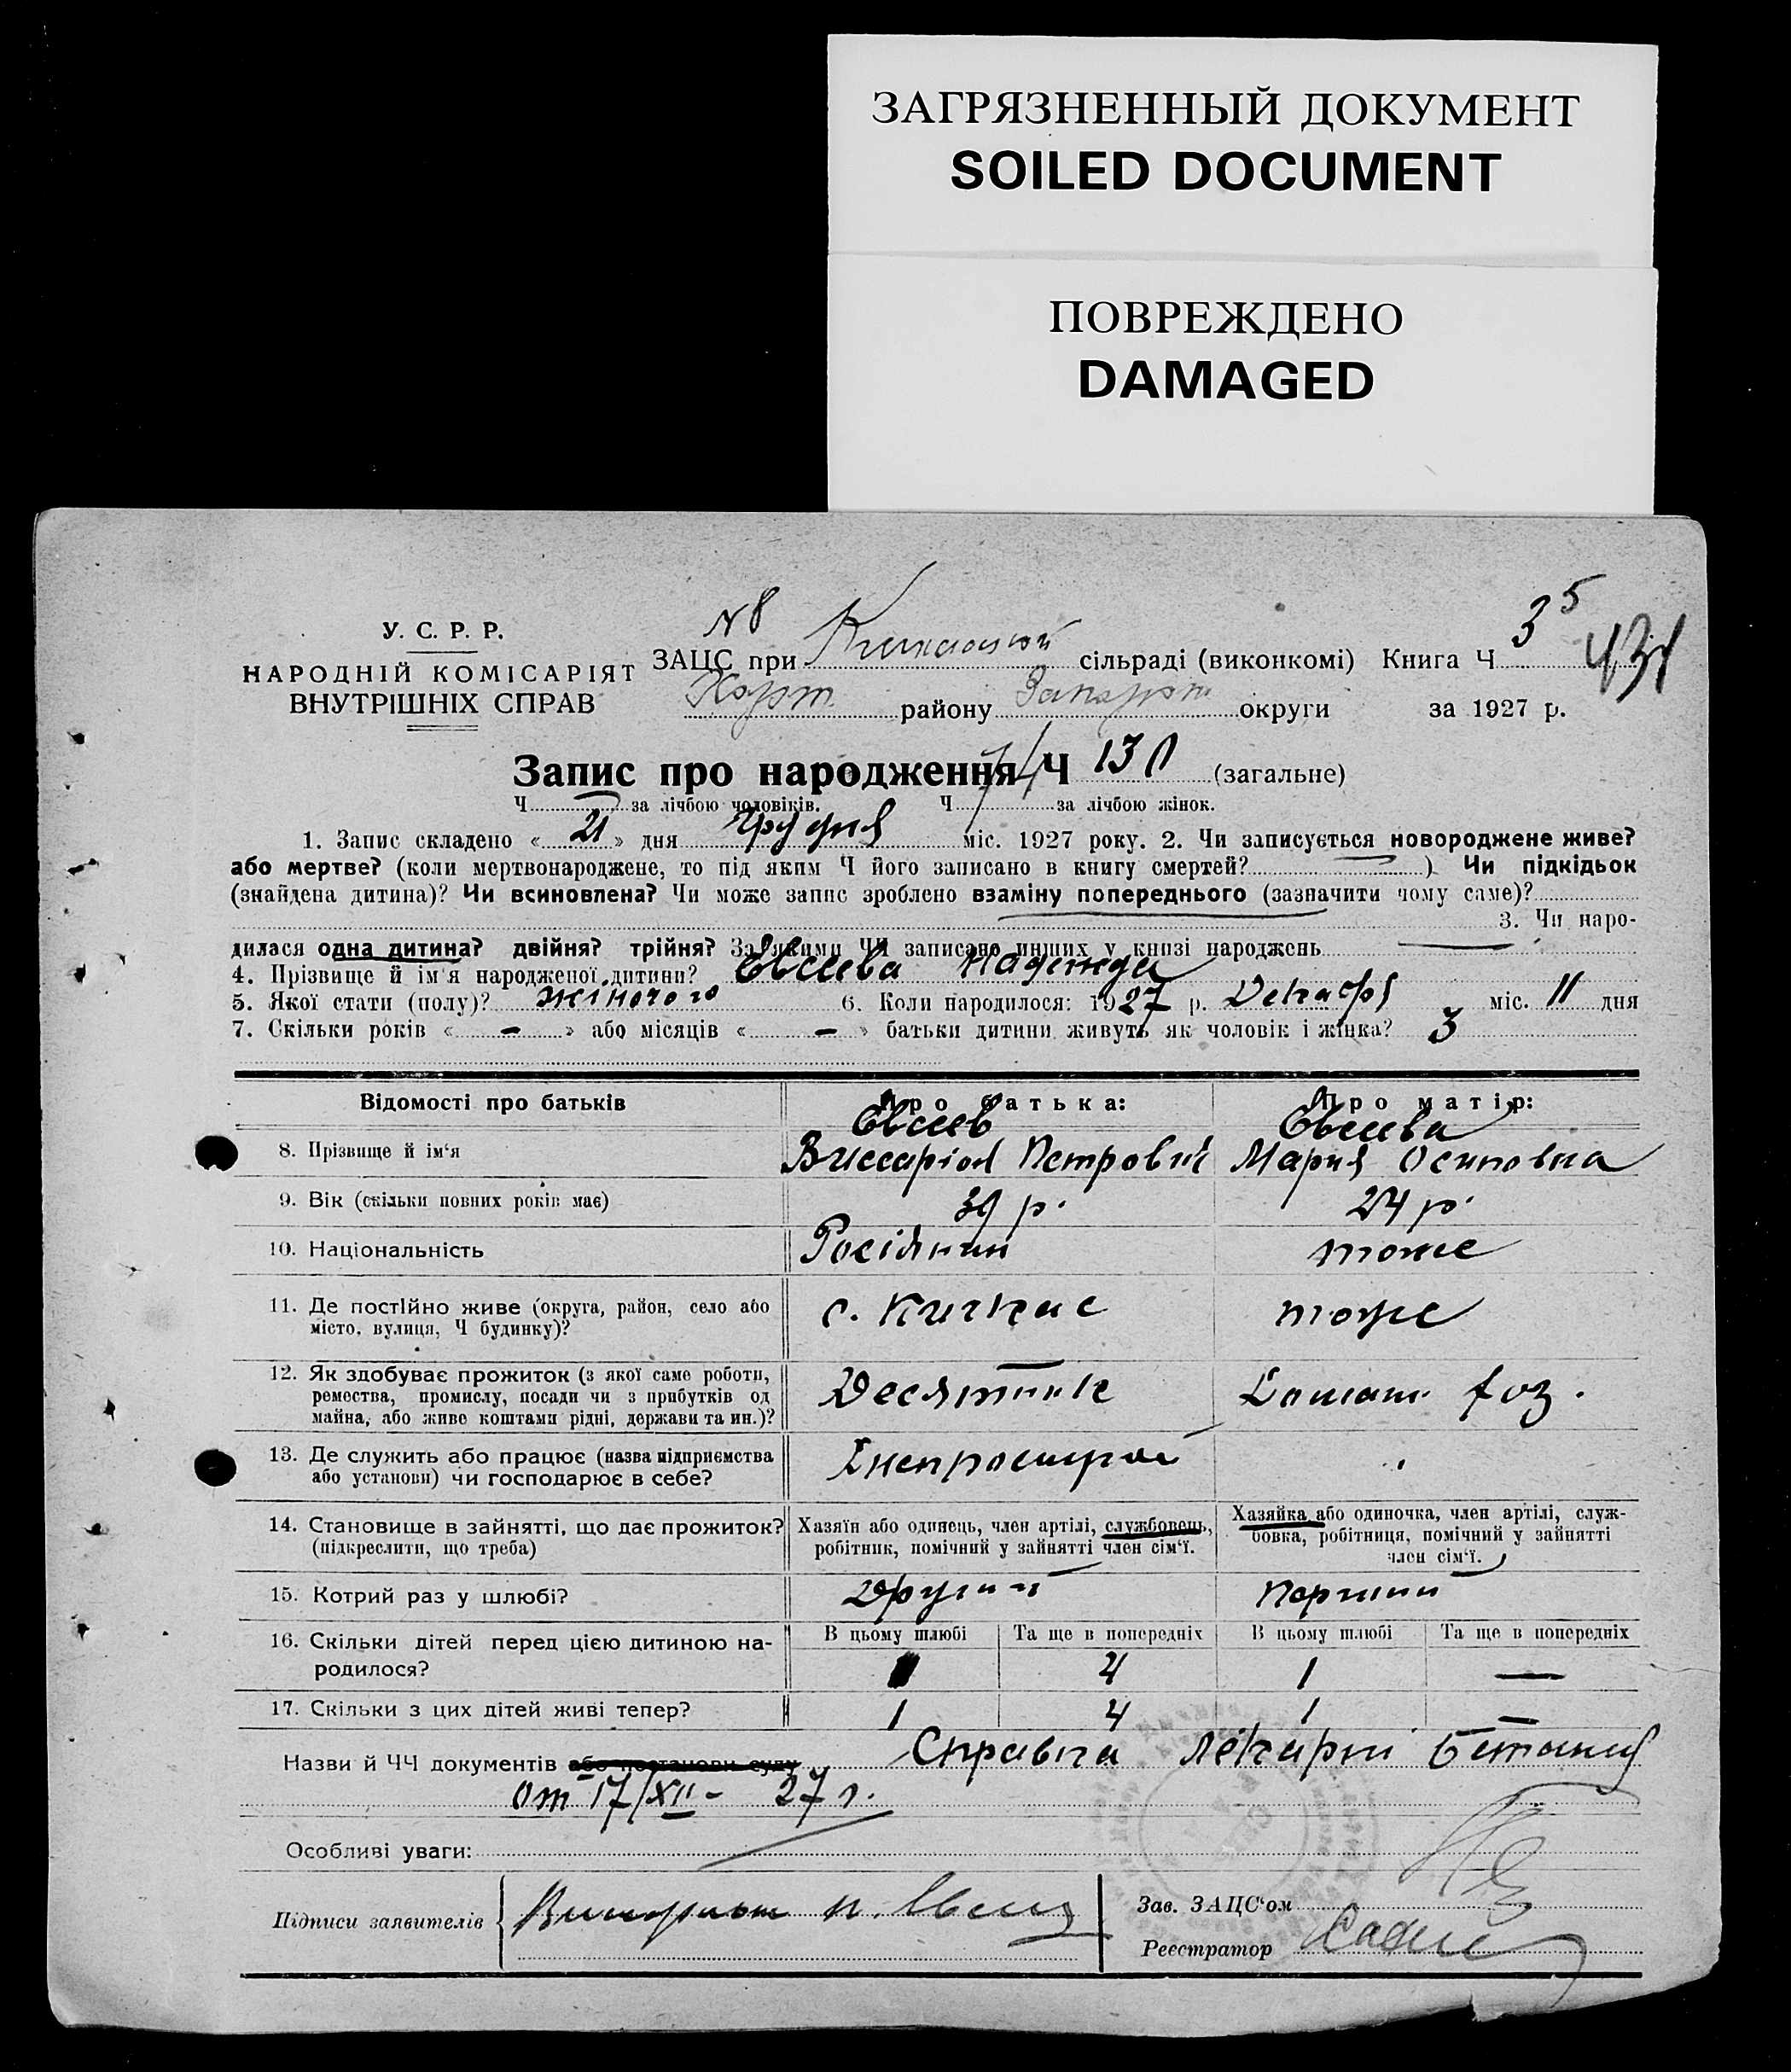 ЗАГРЯЗНЕННЫЙ ДОКУМЕНТ
SOILED DOCUMENT
ПОВРЕЖДЕНО
DAMAGED
№ 8
3 5
У. С. Р. Р.
НАРОДНІЙ КОМІСАРІЯТ
ВНУТРІШНІХ СПРАВ
ЗАЦС при сільраді (виконкомі) Книга Ч
Хорт. району Запоріж округи за 1927 р.
Запис про народження Ч 130 (загальне)
Ч за лічбою чоловіків. Ч 74 за лічбою жінок.
1. Запис складено « 21 » дня Грудня міс. 1927 року. 2. Чи записується новороджене живе?
або мертве? (коли мертвонароджене, то під яким Ч його записано в книгу смертей? ) Чи підкідьок
(знайдена дитина)? Чи всиновлена? Чи може запис зроблено взаміну попереднього (зазначити чому саме)?
3. Чи наро-
дилася одна дитина? двійня? трійня? За якими ЧЧ записано инших у книзі народжень
4. Прізвище й ім'я народженої дитини? Евсеева Надежда
5. Якої стати (полу)? жіночого 6. Коли народилося: 1927 р. Декабря міс. 11 дня
7. Скільки років « - » або місяців « - » батьки дитини живуть як чоловік і жінка? 3
Відомості про батьків Про батька: Про матір:
Евсеев Евсеева
8. Прізвище й ім'я Виссаріон Петрович Мария Осиповна
9. Вік (скільки повних років має) 39 р. 24 р.
10. Національність Росіянин тоже
11. Де постійно живе (округа, район, село або
місто, вулиця, Ч будинку)? с. Кичкас тоже
12. Як здобуває прожиток (з якої саме роботи,
ремества, промислу, посади чи з прибутків од
майна, або живе коштами рідні, держави та ин.)? Десятник Домаш. хоз.
13. Де служить або працює (назва підприємства
або установи) чи господарює в себе? Днепрострой
14. Становище в зайнятті, що дає прожиток?
(підкреслити, що треба)
Хазяїн або одинець, член артілі, службовець,
робітник, помічний у зайнятті член сім'ї.
Хазяйка або одиночка, член артілі, служ-
бовка, робітниця, помічний у зайнятті
член сім'ї.
15. Котрий раз у шлюбі? Другий Перший
16. Скільки дітей перед цією дитиною на-
родилося?
В цьому шлюбі Та ще в попередніх В цьому шлюбі Та ще в попередніх
1 4 1 —
17. Скільки з цих дітей живі тепер? 1 4 1 —
Назви й ЧЧ документів або постанови суду Справка лекарні Бетания
от 17/XII - 27 г.
Особливі уваги:
Підписи заявителів
Зав. ЗАЦС'ом
Реєстратор